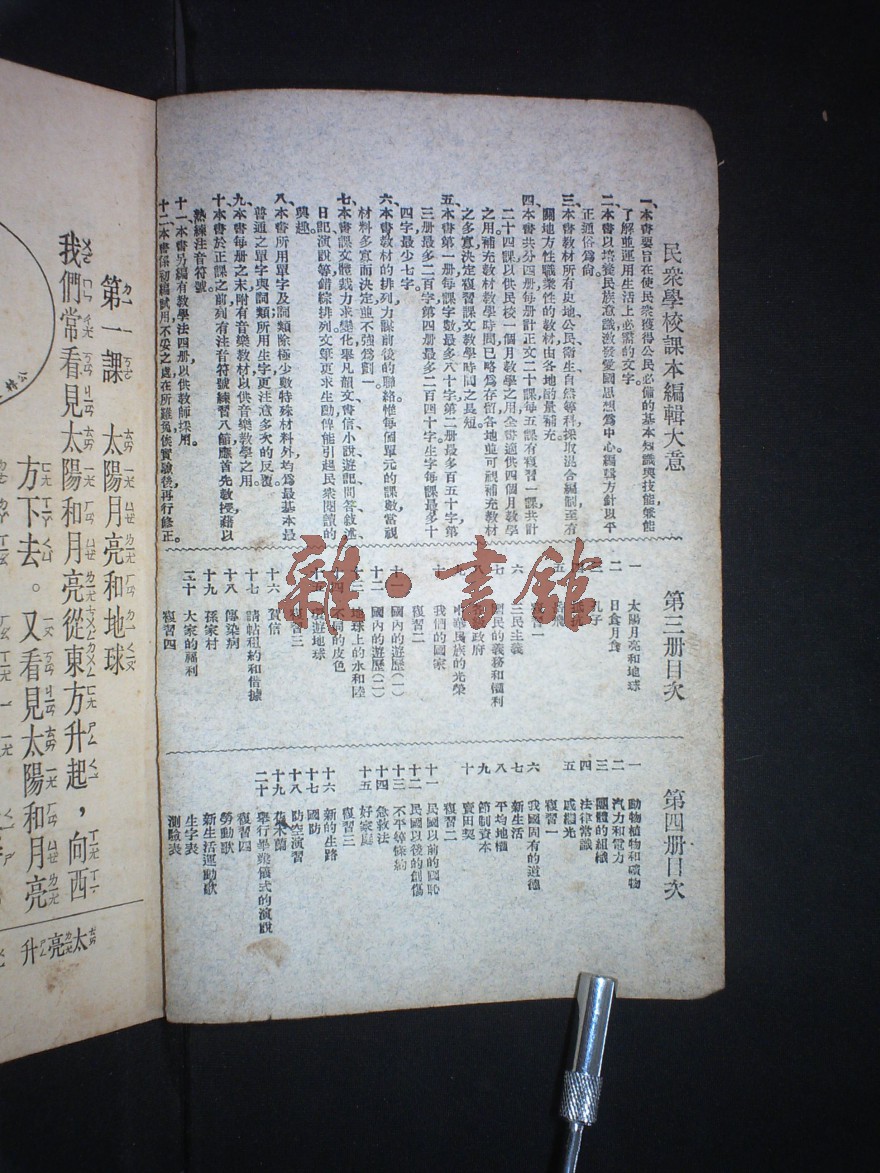 民衆學校課本編輯大意
一、本書要旨在使民衆獲得公民必備的基本知識與技能，俾能
了解並運用生活上必需的文字。
二、本書以培養民族意識激發愛國思想爲中心編輯方針以平
正通俗爲尚。
三、本書教材所有史地公民衛生自然等科採取混合編制至有
關地方性職業性的教材由各地酌量補充
四、本書共分四册每册計正文二十課每五課有複習一課共計
二十四課以供民校一個月教學之用全書適供四個月教學
之用。補充教材教學時間已略爲存留各地並可視補充教材
之多寡決定複習課文教學時間之長短。
五、本書第一册每課字數最多八十字第二册最多百五十字第
三册最多二百字第四册最多二百四十字生字每課最多十
四字最少七字。
六、本書教材的排列力謀前後的聯絡惟每個單元的課數當視
材料多寡而決定並不强爲劃一。
七、本書課文體裁力求變化舉凡韻文書信小說遊記問答敘述
日記演說等錯綜排列文筆更求生動俾能引起民衆閱讀的
興趣。
八、本書所用單字及詞類除極少數特殊材料外均爲最基本最
普通之單字與詞類所用生字更注意多次的反覆。
九、本書每册之末附有音樂教材以供音樂教學之用。
十、本書於正課之前列有注音符號練習八館應首先教授藉以
熟練注音符號
十一、本書另編有教學法四册以供教師採用。
十二、本書係初編試用不妥之處在所難免俟實驗後再行修正。
第三册目次
一 太陽月亮和地球
二 日食月食
孔子
五
複習一
六 三民主義
七 國民的義務和權利
八 政府
九 中華民族的光榮
十 我們的國家
複習二
十一 國內的遊歷（一）
十二 國內的遊歷（二）
十三 地球上的水和陸
十四 不同的皮色
十五 環遊地球
複習三
十六 賀信
十七 請帖租約和借據
十八 傳染病
十九 孫家村
二十 大家的福利
複習四
第四册目次
一 動物植物和礦物
二 汽力和電力
三 團體的組織
四 法律常識
五 戚繼光
複習一
六 我國固有的道德
七 新生活
八 平均地權
九 節制資本
十 賣田契
複習二
十一 民國以前的國恥
十二 民國以後的創傷
十三 不平等條約
十四 急救法
十五 好家庭
複習三
十六 新的生路
十七 國防
十八 防空演習
十九 花木蘭
二十 舉行畢業儀式的演說
複習四
勞動歌
新生活運動歌
生字表
測驗表
雜·書館
第一課 太陽月亮和地球
我們常看見太陽和月亮從東方升起，向西
方下去。又看見太陽和月亮
太亮升